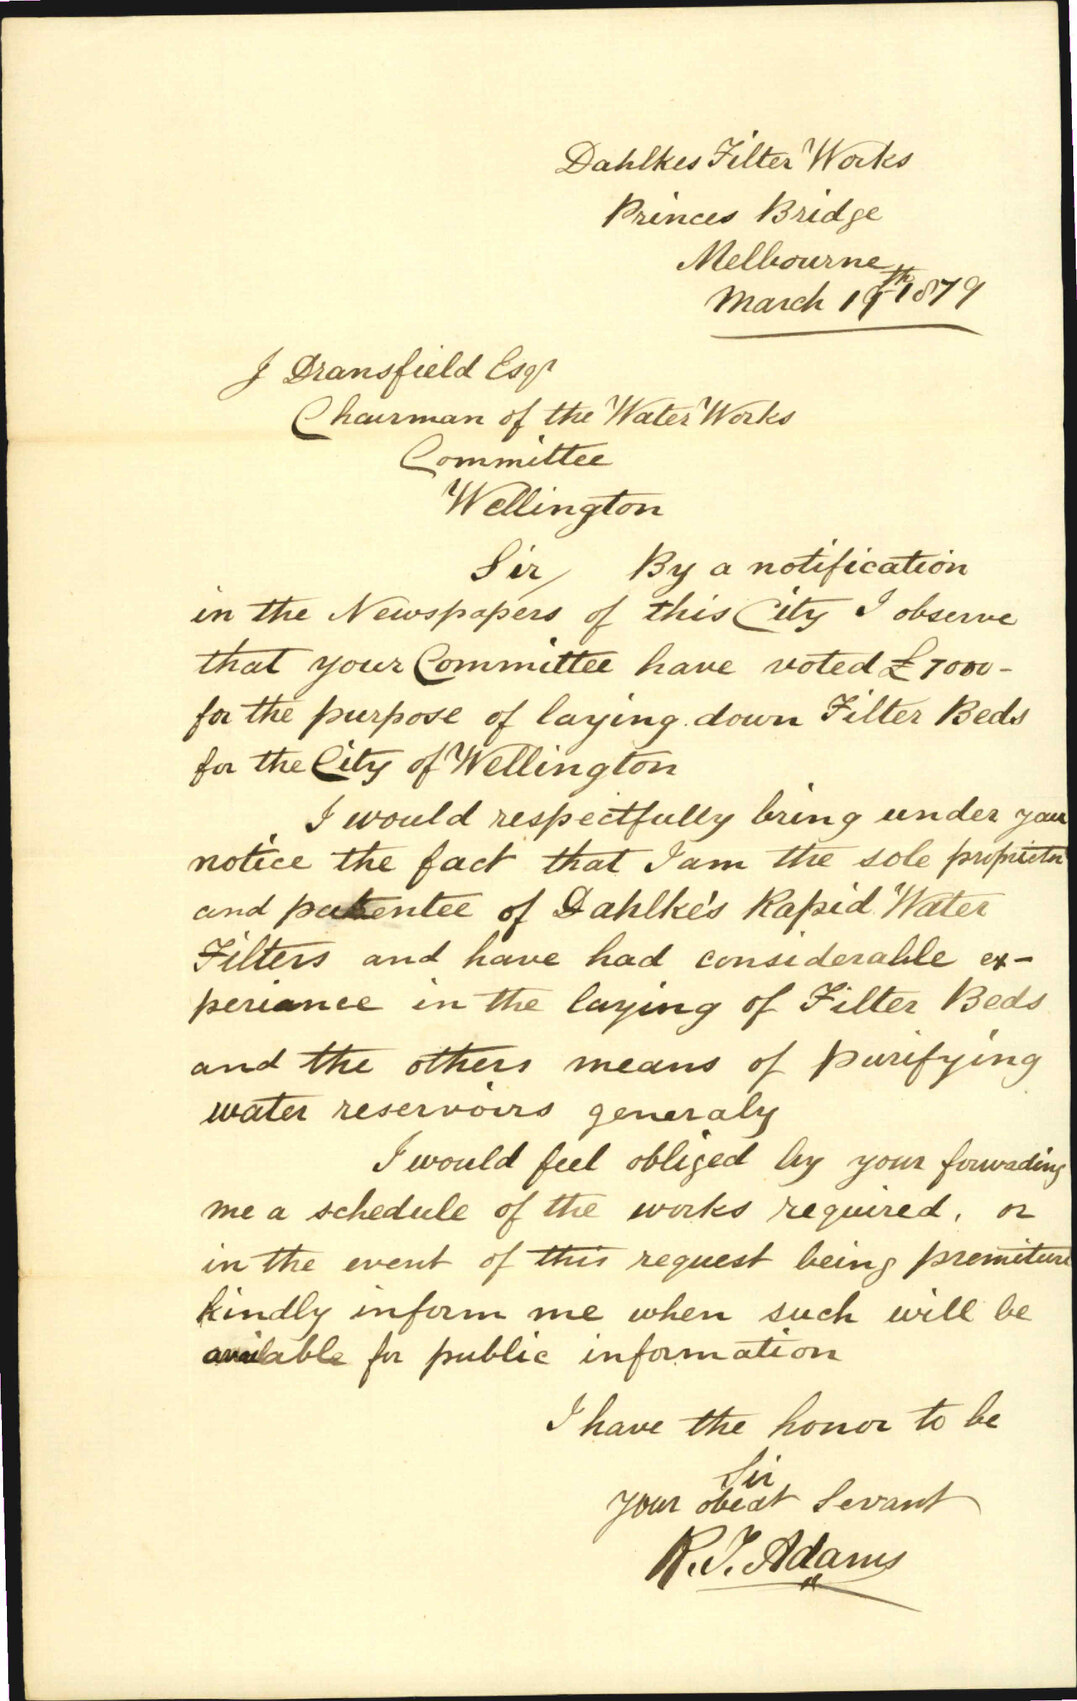 Dahlkes Filter Works
Princes Bridge
Melbourne
March 19th 1879
J Dransfield Esqr
Chairman of the Water Works
Committee
Wellington
Sir / By a notification
in the Newspapers of this City I observe
that your Committee have voted £7000-
for the purpose of laying down Filter Beds
for the City of Wellington
I would respectfully bring under your
notice the fact that I am the sole proprietor
and patentee of Dahlke's Rapid Water
Filters and have had considerable ex-
periance in the laying of Filter Beds
and the others means of purifying
water reservoirs generaly
I would feel obliged by your forwading
me a schedule of the works required, or
in the event of this request being premiture
kindly inform me when such will be
available for public information
I have the honor to be
Sir
your obedt Servant
R. T. Adams